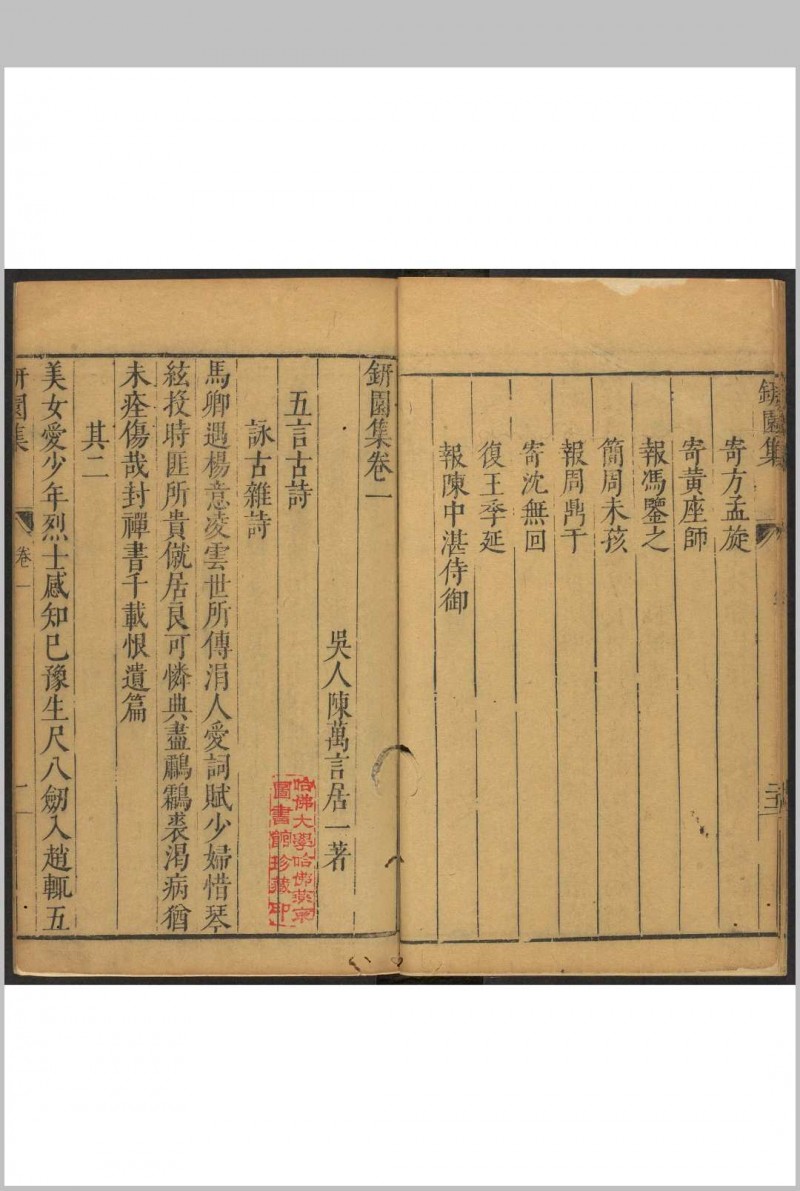 銒園集
寄方孟旋
寄黃座師
報馮鑒之
簡周未孩
報周鼎于
寄沈無回
復王季延
報陳中湛侍御
銒園集卷一
吳人陳萬言居一著
五言古詩
詠古雜詩
馬卿遇楊意凌雲世所傳涓人愛詞賦少婦惜琴
絃投時匪所貴僦居良可憐典盡鸘裘渴病猶
未痊傷哉封禪書千載恨遺篇
其二
美女愛少年烈士感知已豫生尺八劒入趙輒五
園集
卷一
一
哈佛大學哈佛燕京
圖書館珍藏印